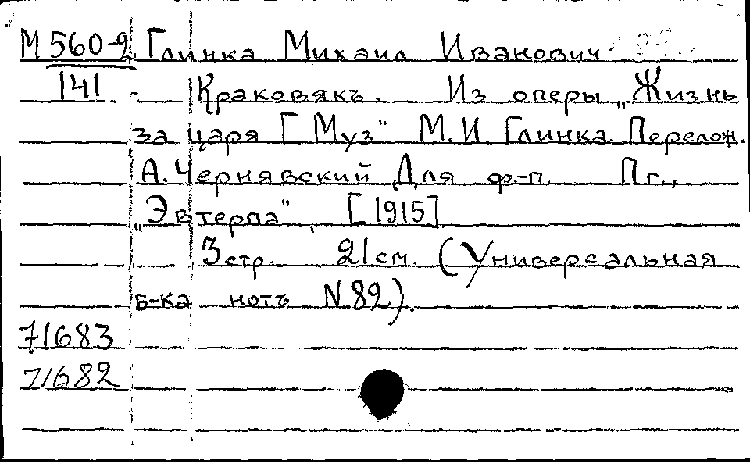 М 560-9 Глинка Михаил Иванович
141 Краковякъ. Из оперы „Жизнь
за царя Г Муз" М.И. Глинка. Перелож.
А. Чернявский Для ф-п. Пг.,
„Эвтерпа", [1915]
3 стр. 21 см. (Универсальная
б-ка нотъ N 82).
71683
71682